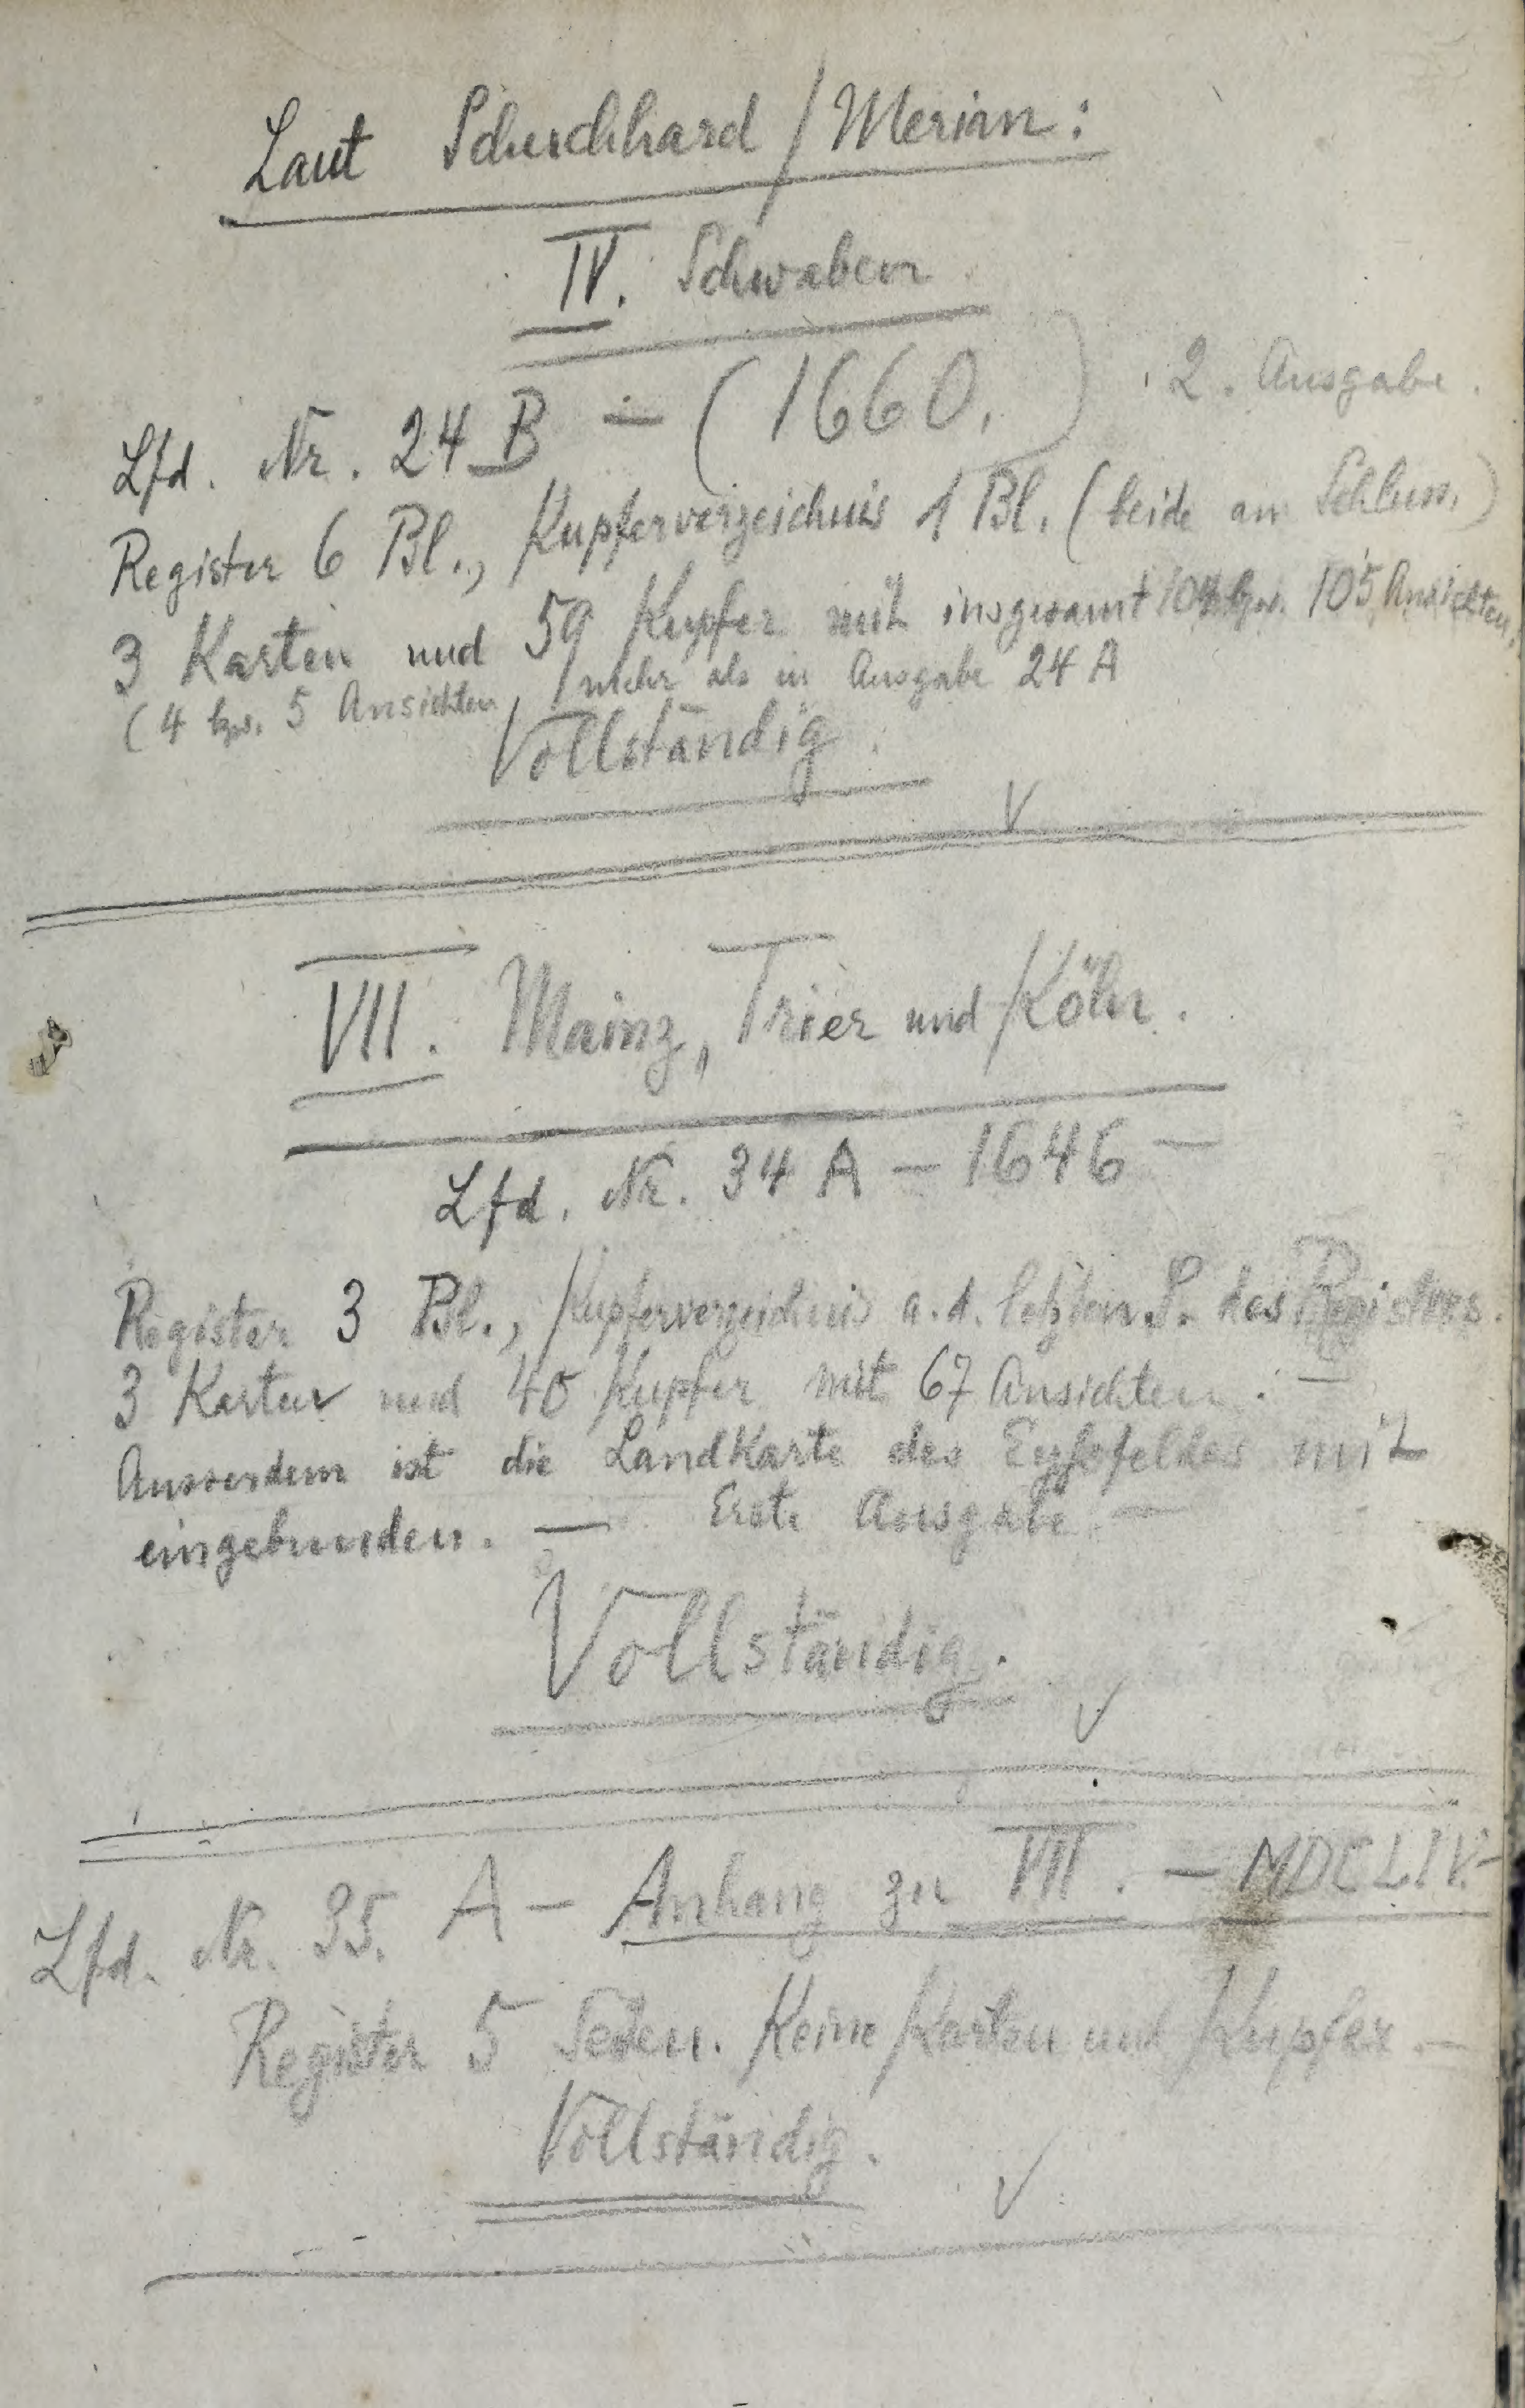 Laut Schuchhard / Merian:
IV. Schwaben
Lfd. Nr. 24 B — (1660.) 2. Ausgabe.
Register 6 Bl., Kupferverzeichnis 1 Bl. (beide am Schluss)
3 Karten und 59 Kupfer mit insgesamt 104 bzw. 105 Ansichten,
(4 bzw. 5 Ansichten mehr als in Ausgabe 24 A
Vollständig.
VII. Mainz, Trier und Köln.
Lfd. Nr. 34 A — 1646 —
Register 3 Bl., Kupferverzeichnis a. d. letzten S. des Registers.
3 Karten und 40 Kupfer mit 67 Ansichten.
Ausserdem ist die Landkarte des Eyfofeldes mit
eingebunden. — Erste Ausgabe —
Vollständig.
Lfd. Nr. 35. A — Anhang zu VII. — MDCLIV. —
Register 5 Seiten. Keine Karten und Kupfer. —
Vollständig.